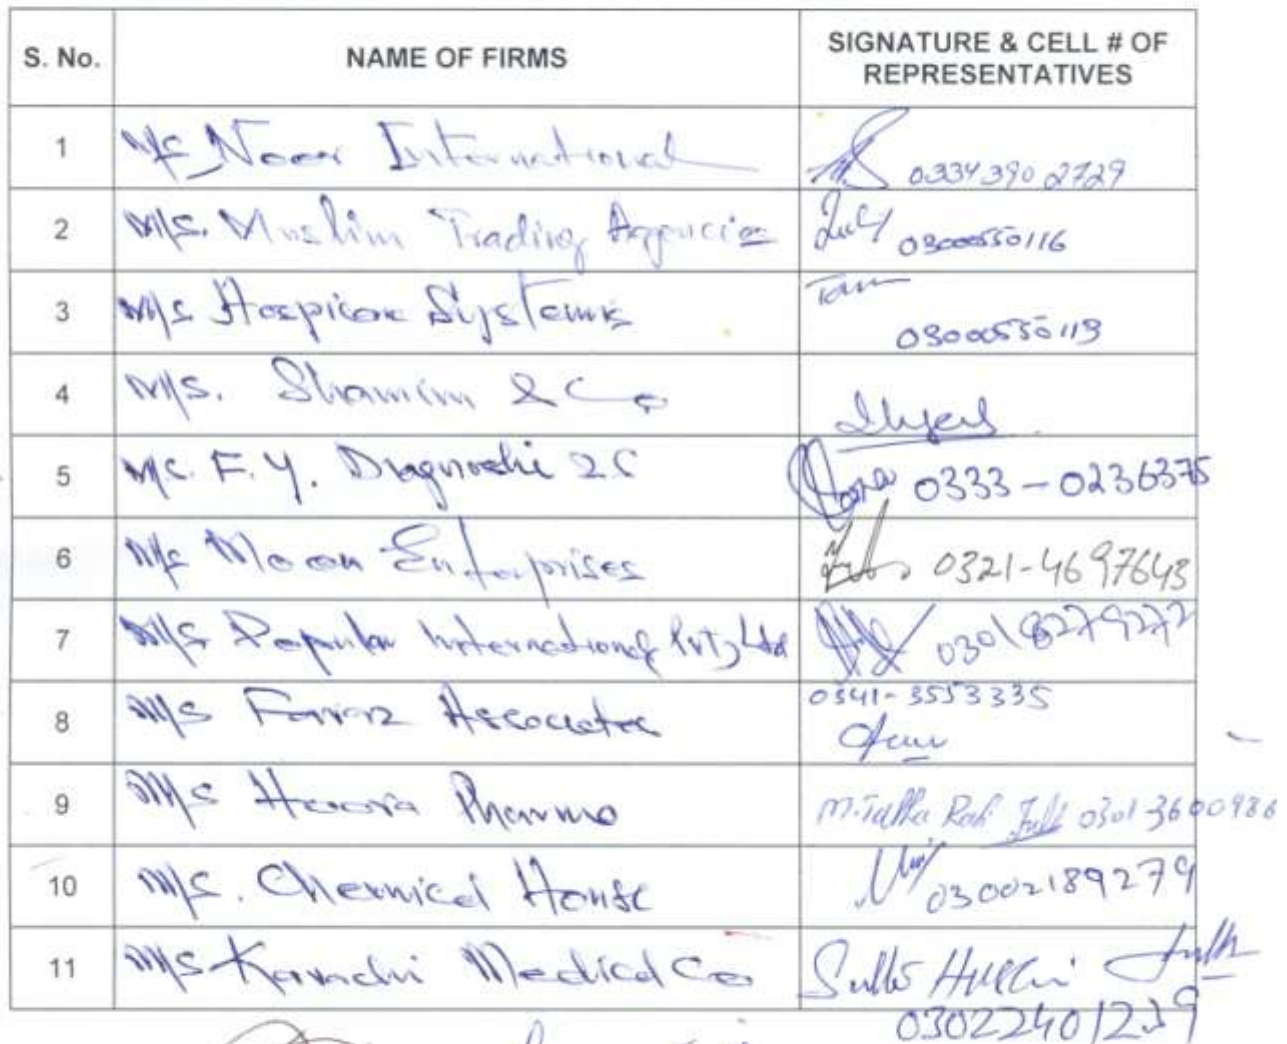 S. No. NAME OF FIRMS SIGNATURE & CELL # OF
REPRESENTATIVES
1 M/s Noor International 0334 390 2729
2 M/S. Muslim Trading Agencies 03000550116
3 M/s Hospicare Systems 03000550113
4 M/S. Shamim & Co
5 M/S. F.Y. Diagnostic
0333-0236375
6 M/s Moon Enterprises 0321-4697643
7 M/S Popular International Pvt, Ltd 03018279272
8 M/S Faraz Associates 0341-3553335
9 M/S Hoora Pharma M. Talha 0301-3600986
10 M/S. Chemical House 03002189279
11 M/S Karachi Medical Co